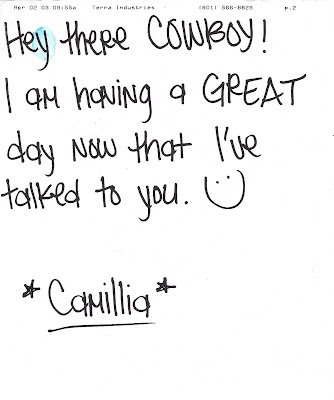 Apr 02 03 09:55a Terra Industries (801) 566-8825 p.2
Hey there COWBOY!
I am having a GREAT
day now that I've
talked to you. ☺
*Camillia*